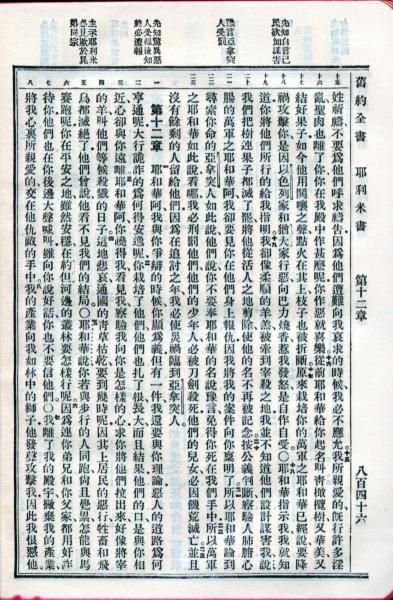 先知自言己
民欲加謀害
豫言亞拿突
人受罰
先知驚異惡
人受福後知
終必遭報
主示耶利米
必見欺於昆
弟同宗
舊約全書 耶利米書 第十二章 八百四十六
姓祈禱不要爲他們呼求禱告因爲他們遭難向我哀求的時候我必不應允我所親愛的旣行許多淫
亂聖肉也離了你你在我殿中作甚麽呢你作惡就喜樂從前耶和華給你起名叫靑橄欖樹又華美又
結好果子如今他用鬨嚷之聲點火在其上枝子也被折斷原來栽培你的萬軍之耶和華已經說要降
禍攻擊你是因以色列家和猶大家行惡向巴力燒香惹我發怒是自作自受〇耶和華指示我我就知
道你將他們所行的給我指明我卻像柔馴的羊羔被牽到宰殺之地我並不知道他們設計謀害我說
我們把樹連果子都滅了罷將他從活人之地剪除使他的名不再被記念按公義判斷察驗人肺腑心
腸的萬軍之耶和華阿我卻要見你在他們身上報仇因我將我的案件向你稟明了所以耶和華論到
尋索你命的亞拿突人如此說他們說你不要奉耶和華的名說豫言免得你死在我們手中所以萬軍
之耶和華如此說看哪我必刑罰他們他們的少年人必被刀劍殺死他們的兒女必因饑荒滅亡並且
沒有餘剩的人留給他們因爲在追討之年我必使災禍臨到亞拿突人
第十二章 耶和華阿我與你爭辯的時候你顯爲義但有一件我還要與你理論惡人的道路爲何
亨通呢大行詭詐的爲何得安逸呢你栽培了他們他們也扎了根長大而且結果他們的口是與你相
近心卻與你遠離耶和華阿你曉得我看見我察驗我向你是怎樣的心求你將他們拉出來好像將宰
的羊叫他們等候殺戮的日子這地悲哀通國的靑草枯乾要到幾時呢因其上居民的惡行牲畜和飛
鳥都滅絕了他們曾說他看不見我們的結局〇耶和華說你若與步行的人同跑尚且覺累怎能與馬
賽跑呢你在平安之地雖然安穩在約但河邊的叢林要怎樣行呢因爲連你弟兄和你父家都用奸詐
待你他們也在你後邊大聲喊叫雖向你說好話你也不要信他們〇我離了我的殿宇撇棄我的產業
將我心裏所親愛的交在他仇敵的手中我的產業向我如林中的獅子他發聲攻擊我因此我恨惡他